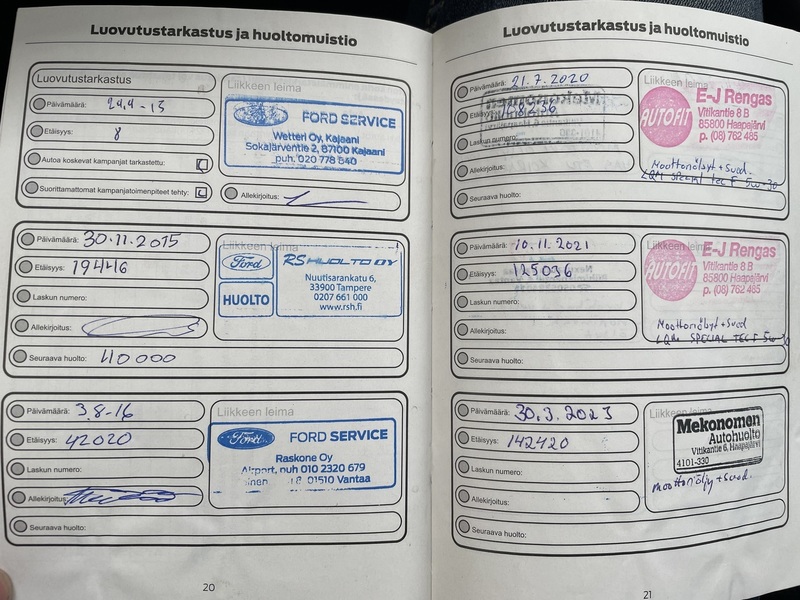 Luovutustarkastus ja huoltomuistio
Luovutustarkastus
Päivämäärä: 24.4-15
Etäisyys: 8
Autoa koskevat kampanjat tarkastettu:
Suorittamattomat kampanjatoimenpiteet tehty:
Liikkeen leima
FORD SERVICE
Wetteri Oy, Kajaani
Sokajärventie 2, 87100 Kajaani
puh. 020 778 840
Allekirjoitus:
Päivämäärä: 30.11.2015
Etäisyys: 19446
Laskun numero:
Allekirjoitus:
Seuraava huolto: 40000
Liikkeen leima
Ford
HUOLTO
RS HUOLTO OY
Nuutisarankatu 6,
33900 Tampere
0207 661 000
www.rsh.fi
Päivämäärä: 3.8-16
Etäisyys: 42020
Laskun numero:
Allekirjoitus:
Seuraava huolto:
Liikkeen leima
Ford
FORD SERVICE
Raskone Oy
Airport, puh 010 2320 679
01510 Vantaa
20
Luovutustarkastus ja huoltomuistio
Päivämäärä: 21.7.2020
Etäisyys:
Laskun numero:
Allekirjoitus:
Seuraava huolto:
Liikkeen leima
AUTOFIT
E-J Rengas
Vitikantie 8 B
85800 Haapajärvi
p. (08) 762 485
Moottoriöljyt + Suod.
LQM SPECIAL TEC F 5w-30
Päivämäärä: 10.11.2021
Etäisyys: 125036
Laskun numero:
Allekirjoitus:
Seuraava huolto:
Liikkeen leima
AUTOFIT
E-J Rengas
Vitikantie 8 B
85800 Haapajärvi
p. (08) 762 485
Moottoriöljyt + Suod
LQM SPECIAL TEC F 5w-30
Päivämäärä: 30.3.2023
Etäisyys: 142420
Laskun numero:
Allekirjoitus:
Seuraava huolto:
Liikkeen leima
Mekonomen
Autohuolto
Vitikantie 6, Haapajärvi
4101-330
moottoriöljy + suod.
21